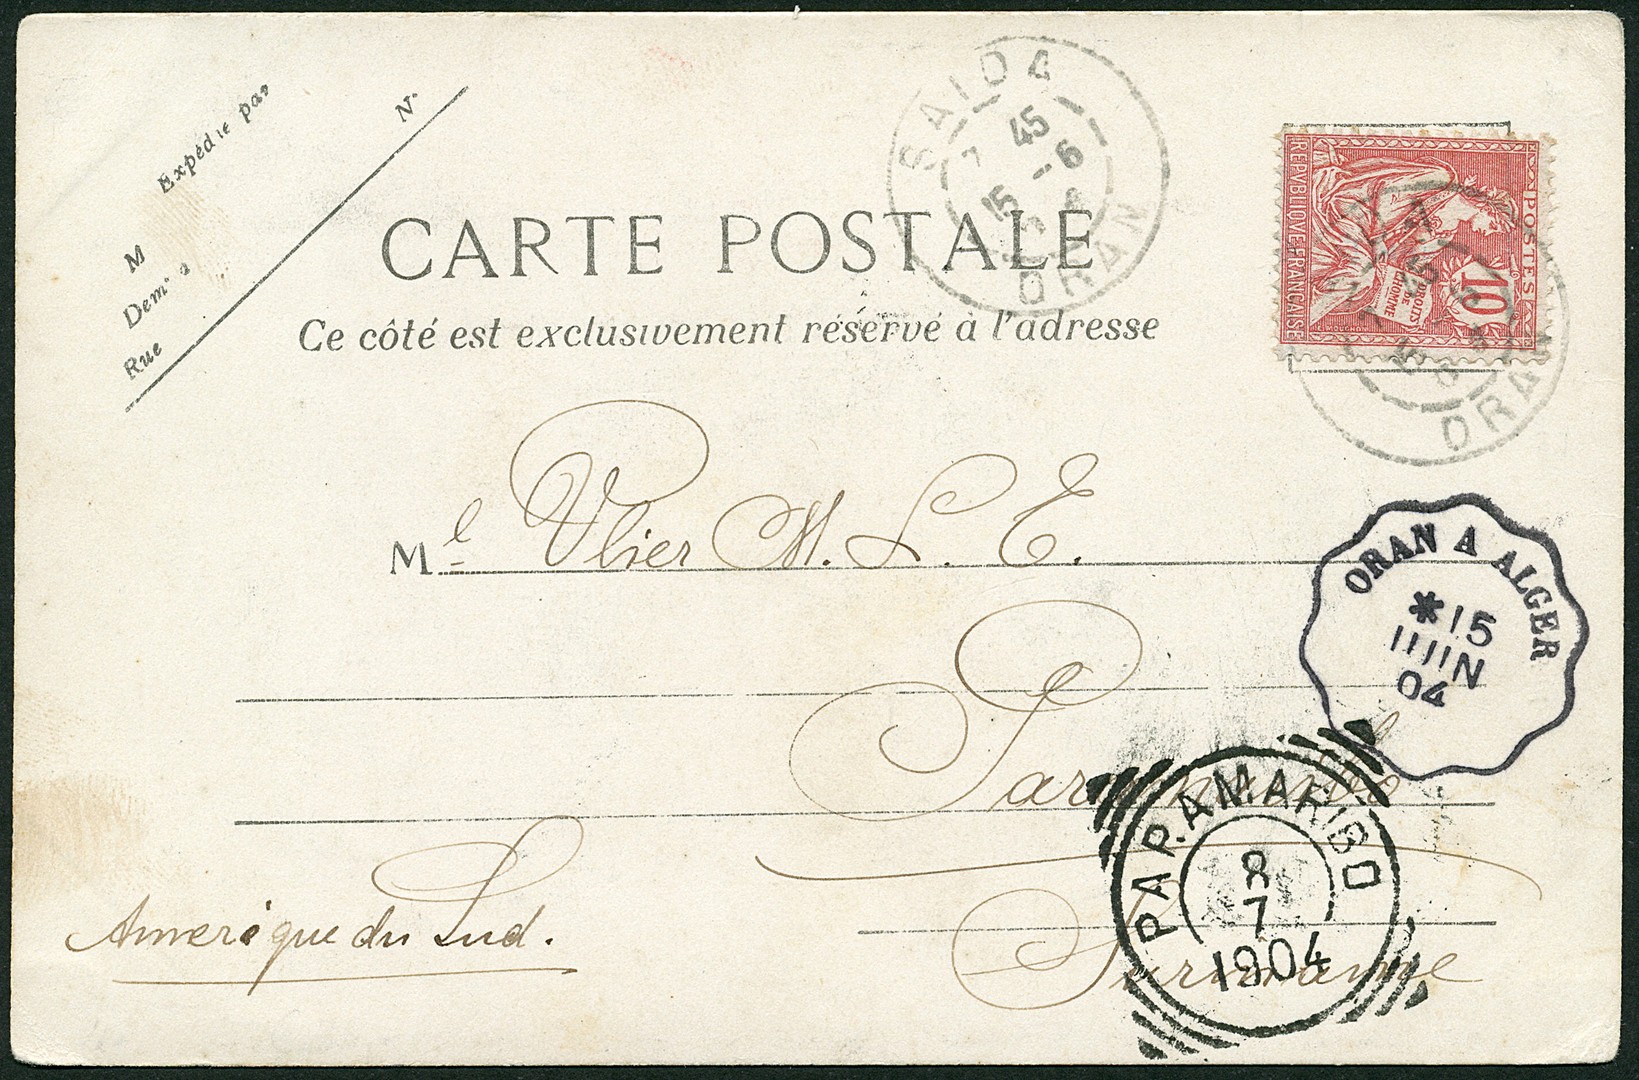 Expédie par
N°
M
Rue
CARTE POSTALE
Ce côté est exclusivement réservé à l'adresse
SAIDA
7 45
15 -6
ORAN
POSTES
10
REPVBLIQVE FRANÇAISE
DROITS
DE
L'HOMME
MOUCHON
ORAN
Ml Vlier M. L. E.
ORAN A ALGER
*15
JUIN
04
Paramaribo
PARAMARIBO
8
7
1904
Amerique du Sud.
Suriname